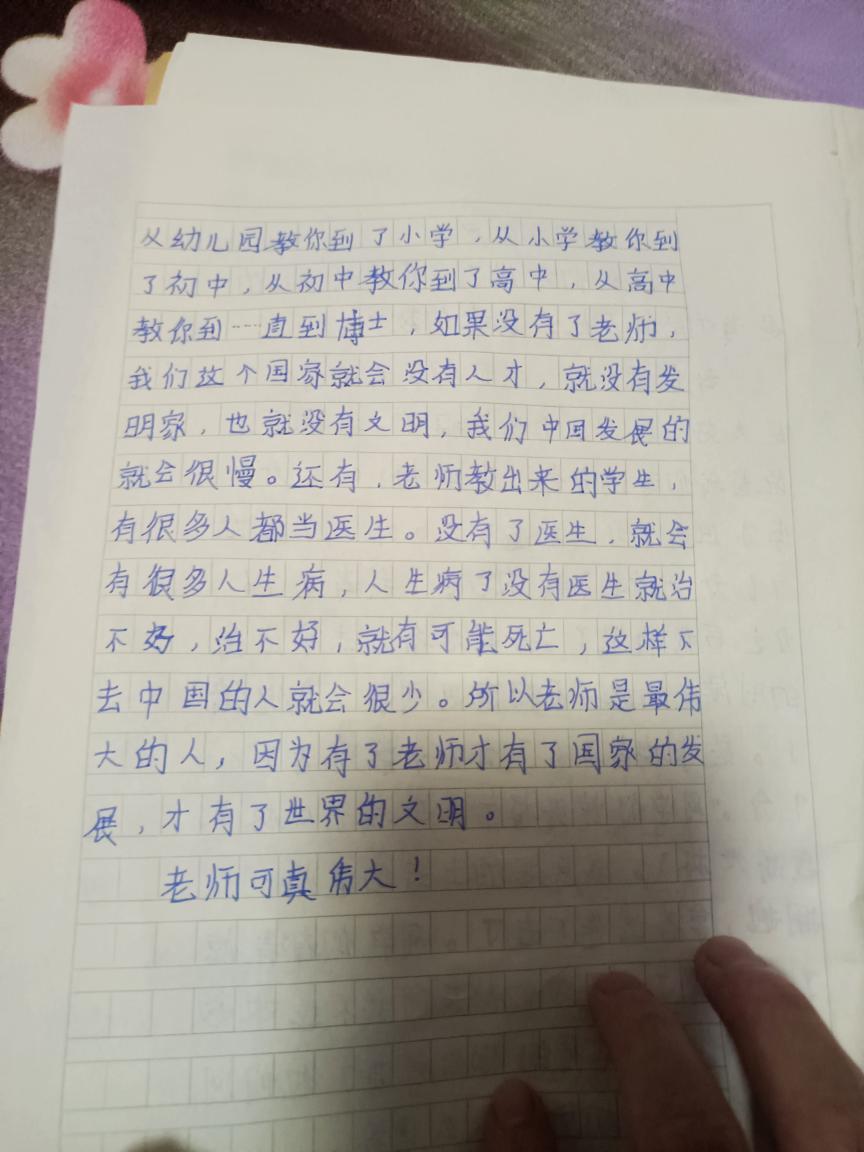 从幼儿园教你到了小学，从小学教你到
了初中，从初中教你到了高中，从高中
教你到……直到博士，如果没有了老师，
我们这个国家就会没有人才，就没有发
明家，也就没有文明，我们中国发展的
就会很慢。还有，老师教出来的学生，
有很多人都当医生。没有了医生，就会
有很多人生病，人生病了没有医生就治
不好，治不好，就有可能死亡，这样下
去中国的人就会很少。所以老师是最伟
大的人，因为有了老师才有了国家的发
展，才有了世界的文明。
老师可真伟大！